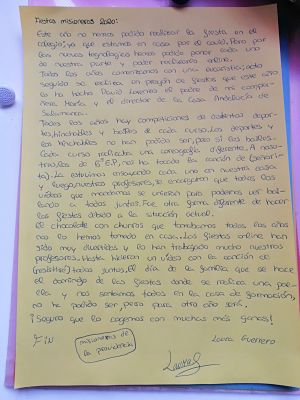 Fiestas misioneras 2020:
Este año no hemos podido realizar la fiesta en el
colegio, ya que estamos en casa por el covid. Pero por
las nuevas tecnologías hemos podido poner cada uno
de nuestra parte y poder realizarlo online.
Todos los años comenzamos con una eucaristía; acto
seguido se realiza un pregón de fiestas que este año
lo ha hecho David Lorenzo el padre de mi compañe-
ra María y el director de la Casa Andalucía de
Salamanca.
Todos los años hay competiciones de distintos depor-
tes, hinchables y bailes de cada curso. Los deportes y
los hinchables no han podido ser, pero sí los bailes.
Cada curso realiza una coreografía diferente. A noso-
tros, los de 6º E.P, nos ha tocado la canción de
La estuvimos ensayando cada uno en nuestra casa
y luego, nuestros profesores, se encargaron que todos los
vídeos que mandamos se unieran para podernos ver bai-
lando a todos juntos. Fue otra forma diferente de hacer
las fiestas debido a la situación actual.
El chocolate con churros que tomábamos todos los años
nos lo hemos tomado en casa. Las fiestas online han
sido muy divertidas y lo han trabajado mucho nuestros
profesores. Hasta hicieron un vídeo con la canción de
(resistiré) todos juntos. El día de la familia que se hace
el domingo de las fiestas donde se realiza una pae-
lla y nos sentamos todos en la casa de formación,
no ha podido ser, pero para otro año será.
¡Seguro que lo cogemos con muchas más ganas!
Fin
misioneras de
la providencia
Laura Guerrero